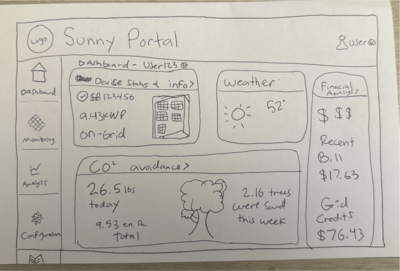 Logo
Sunny Portal
User
Dashboard - User123
Dashboard
Monitoring
Analysis
Configuration
Device Status & info>
SB123456
9.43KWP
on-Grid
Weather
52°
CO² avoidance>
26.5 lbs
today
Total
2.16 trees
were saved
this week
Financial
Analysis
$ $$
Recent
Bill
$17.63
Grid
Credits
$76.43